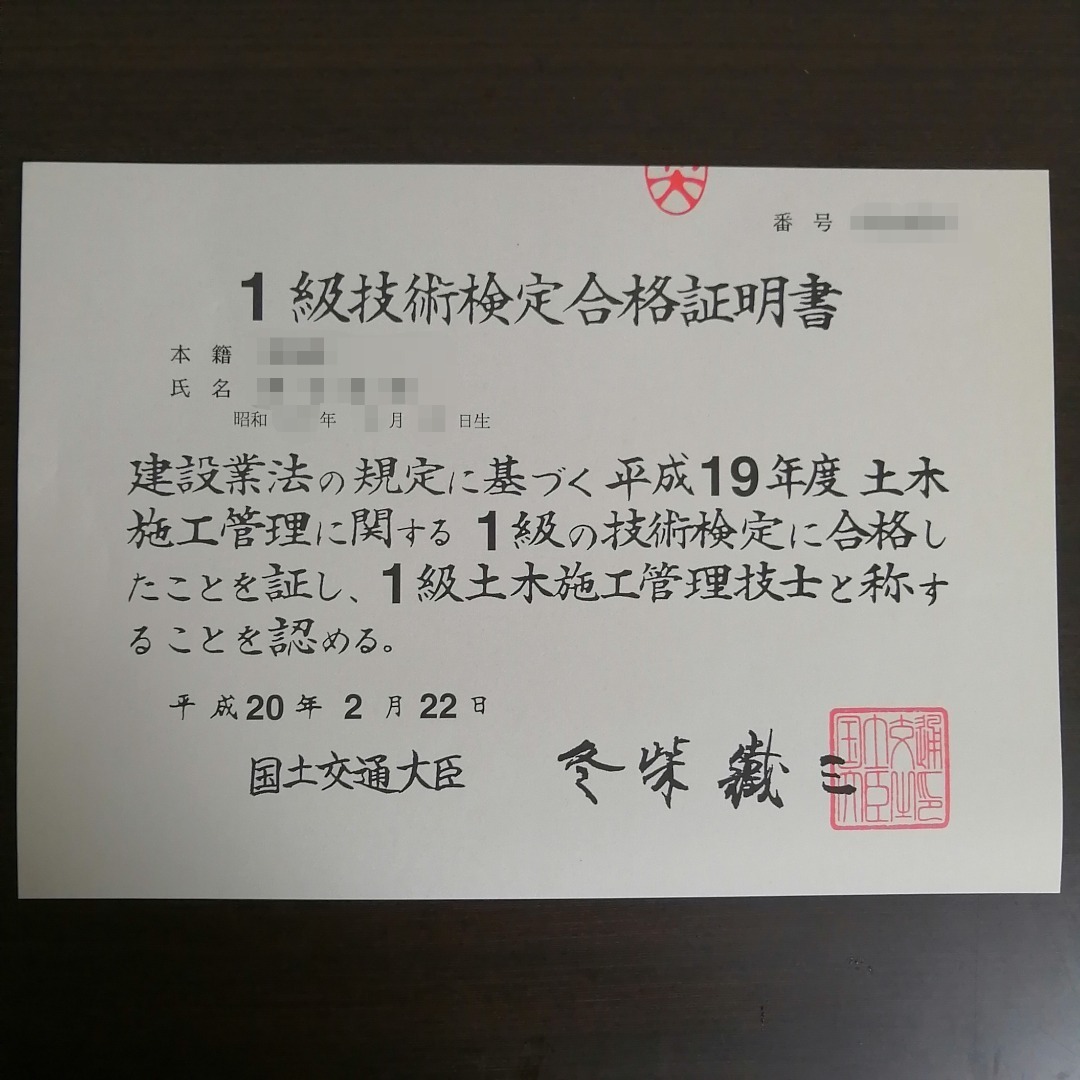 番号
1級技術検定合格証明書
本籍
氏名
昭和 年 月 日生
建設業法の規定に基づく平成19年度 土木
施工管理に関する 1級の技術検定に合格し
たことを証し、1級土木施工管理技士と称す
ることを認める。
平成20年2月22日
国土交通大臣 冬柴鐵三
国土交通大臣之印